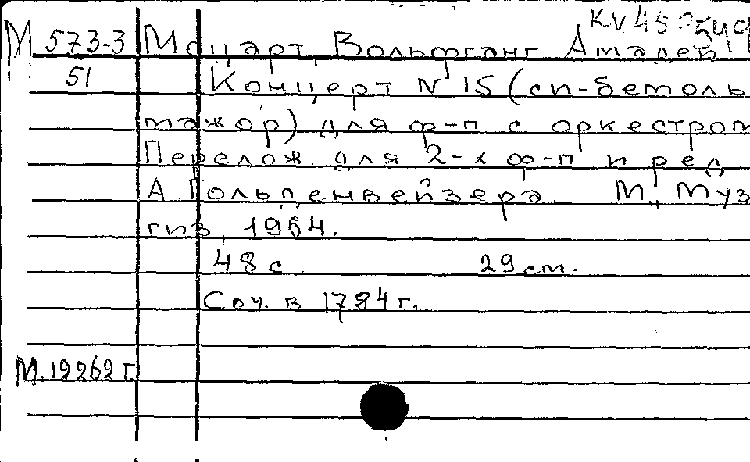 KV 450
М 573-3 Моцарт, Вольфганг Амадей
51 Концерт № 15 (си-бемоль
мажор) для ф-п с оркестром
Перелож. для 2-х ф-п и ред.
А Гольденвейзера М., Муз
гиз, 1954.
48 с 29 см.
Соч. в 1784 г.
М.19262 г.